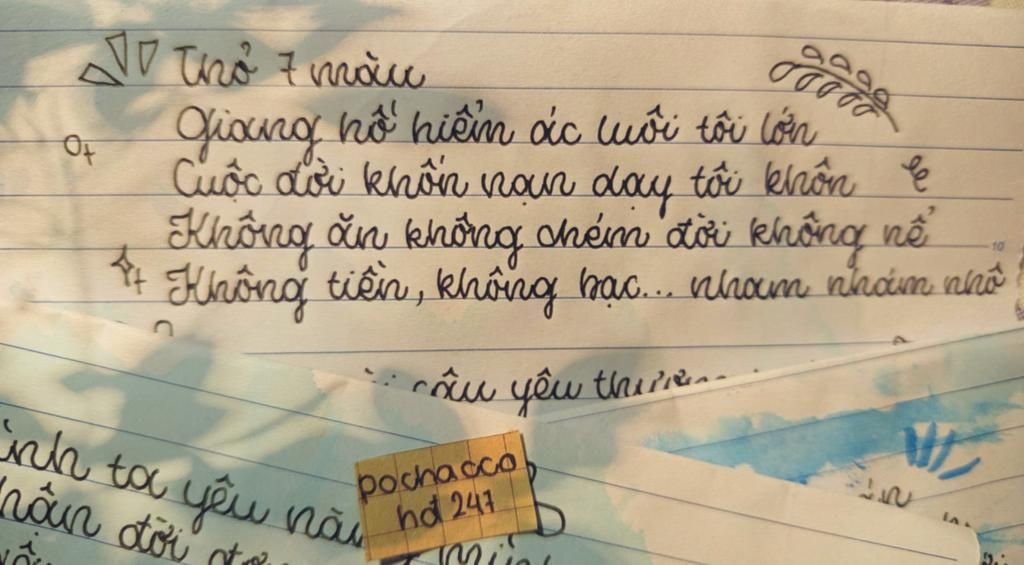 Thỏ 7 màu
Giang hồ hiểm ác nuôi tôi lớn
Cuộc đời khốn nạn dạy tôi khôn
Không ăn không chém đời không nể
Không tiền, không bạc... nham nhám nhô
câu yêu thương
inh ta yêu
đời
pochacco
hd 247